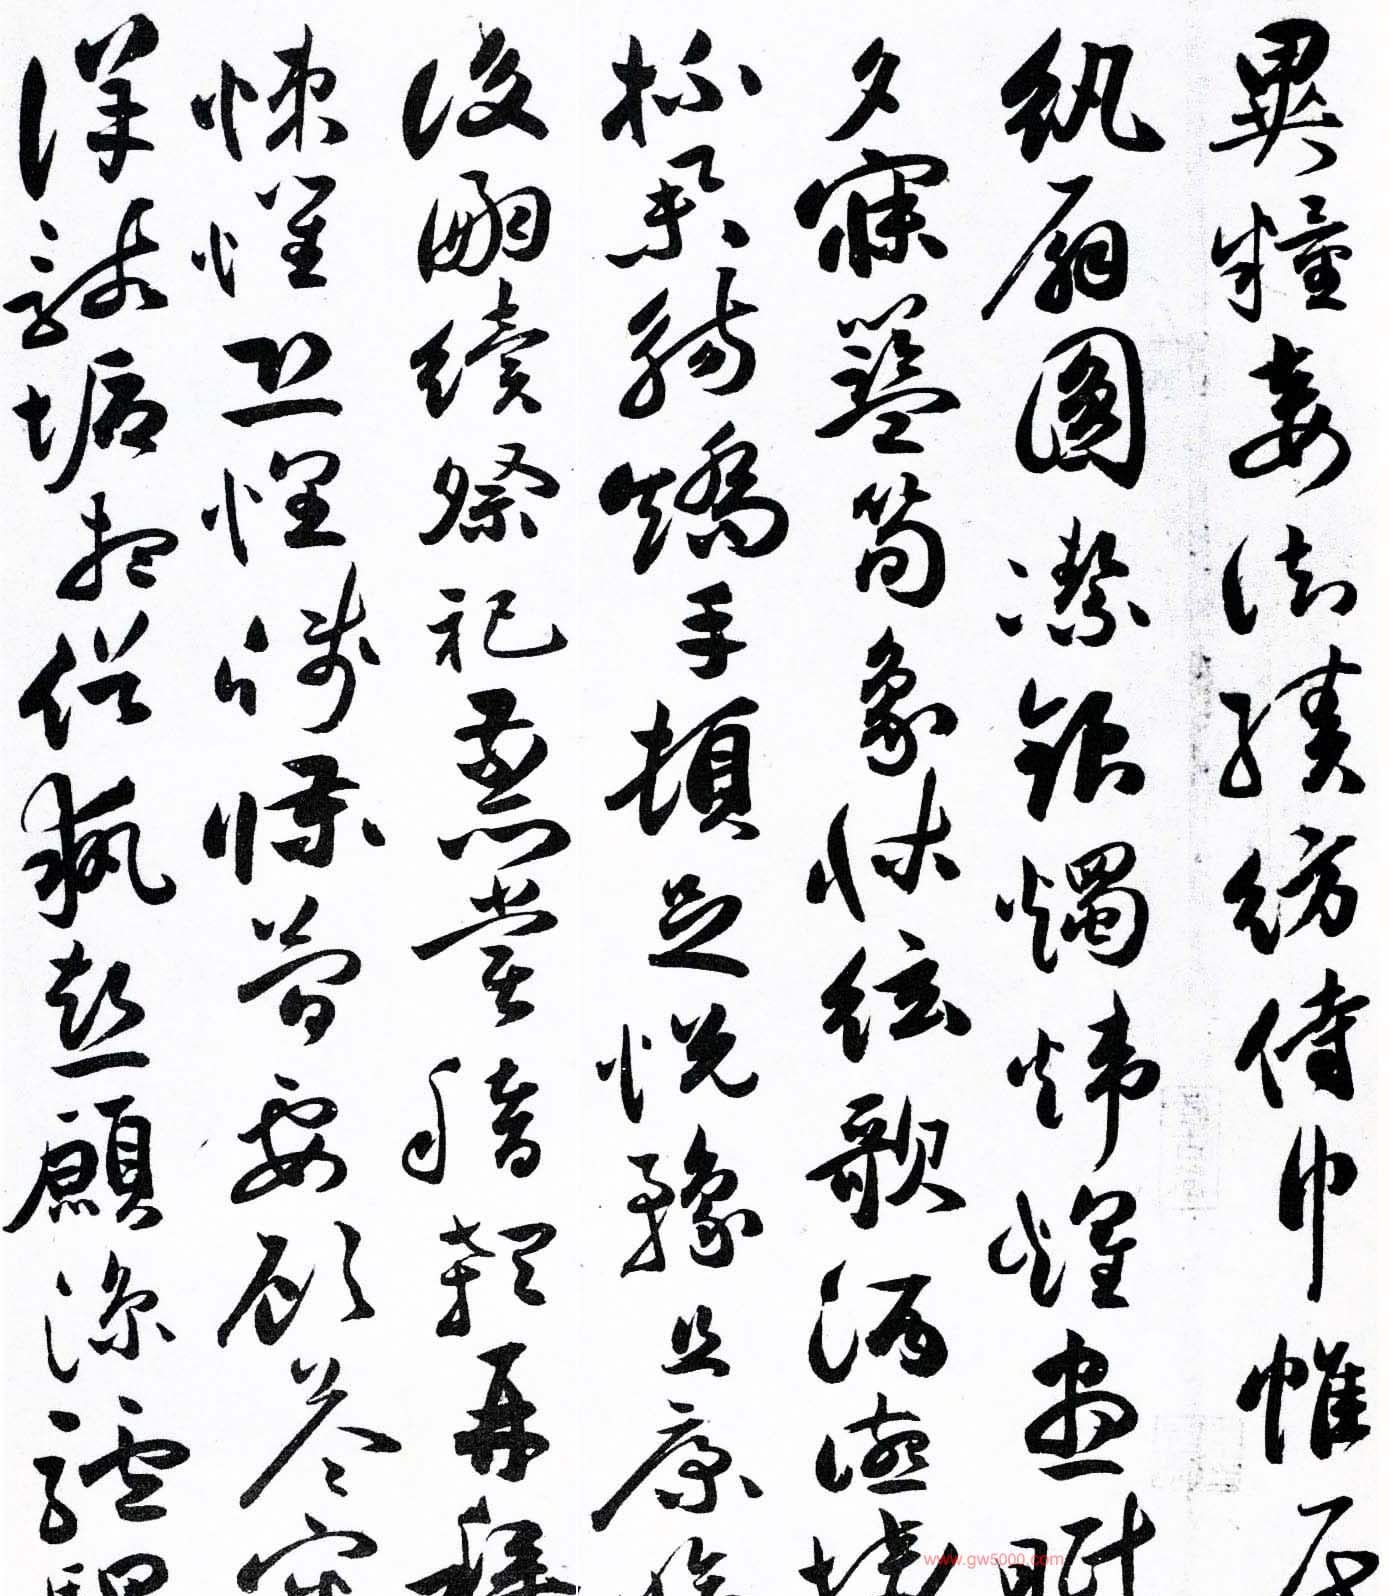 異糧妾御績紡侍巾帷房
紈扇圓潔銀燭煒煌晝眠
夕寐籃筍象牀絃歌酒讌接
杯舉觴矯手頓足悅豫且康嫡
後嗣續祭祀蒸嘗稽顙再拜
悚懼恐惶牋牒簡要顧答審
詳骸垢想浴執熱願涼驢騾
www.gw5000.com